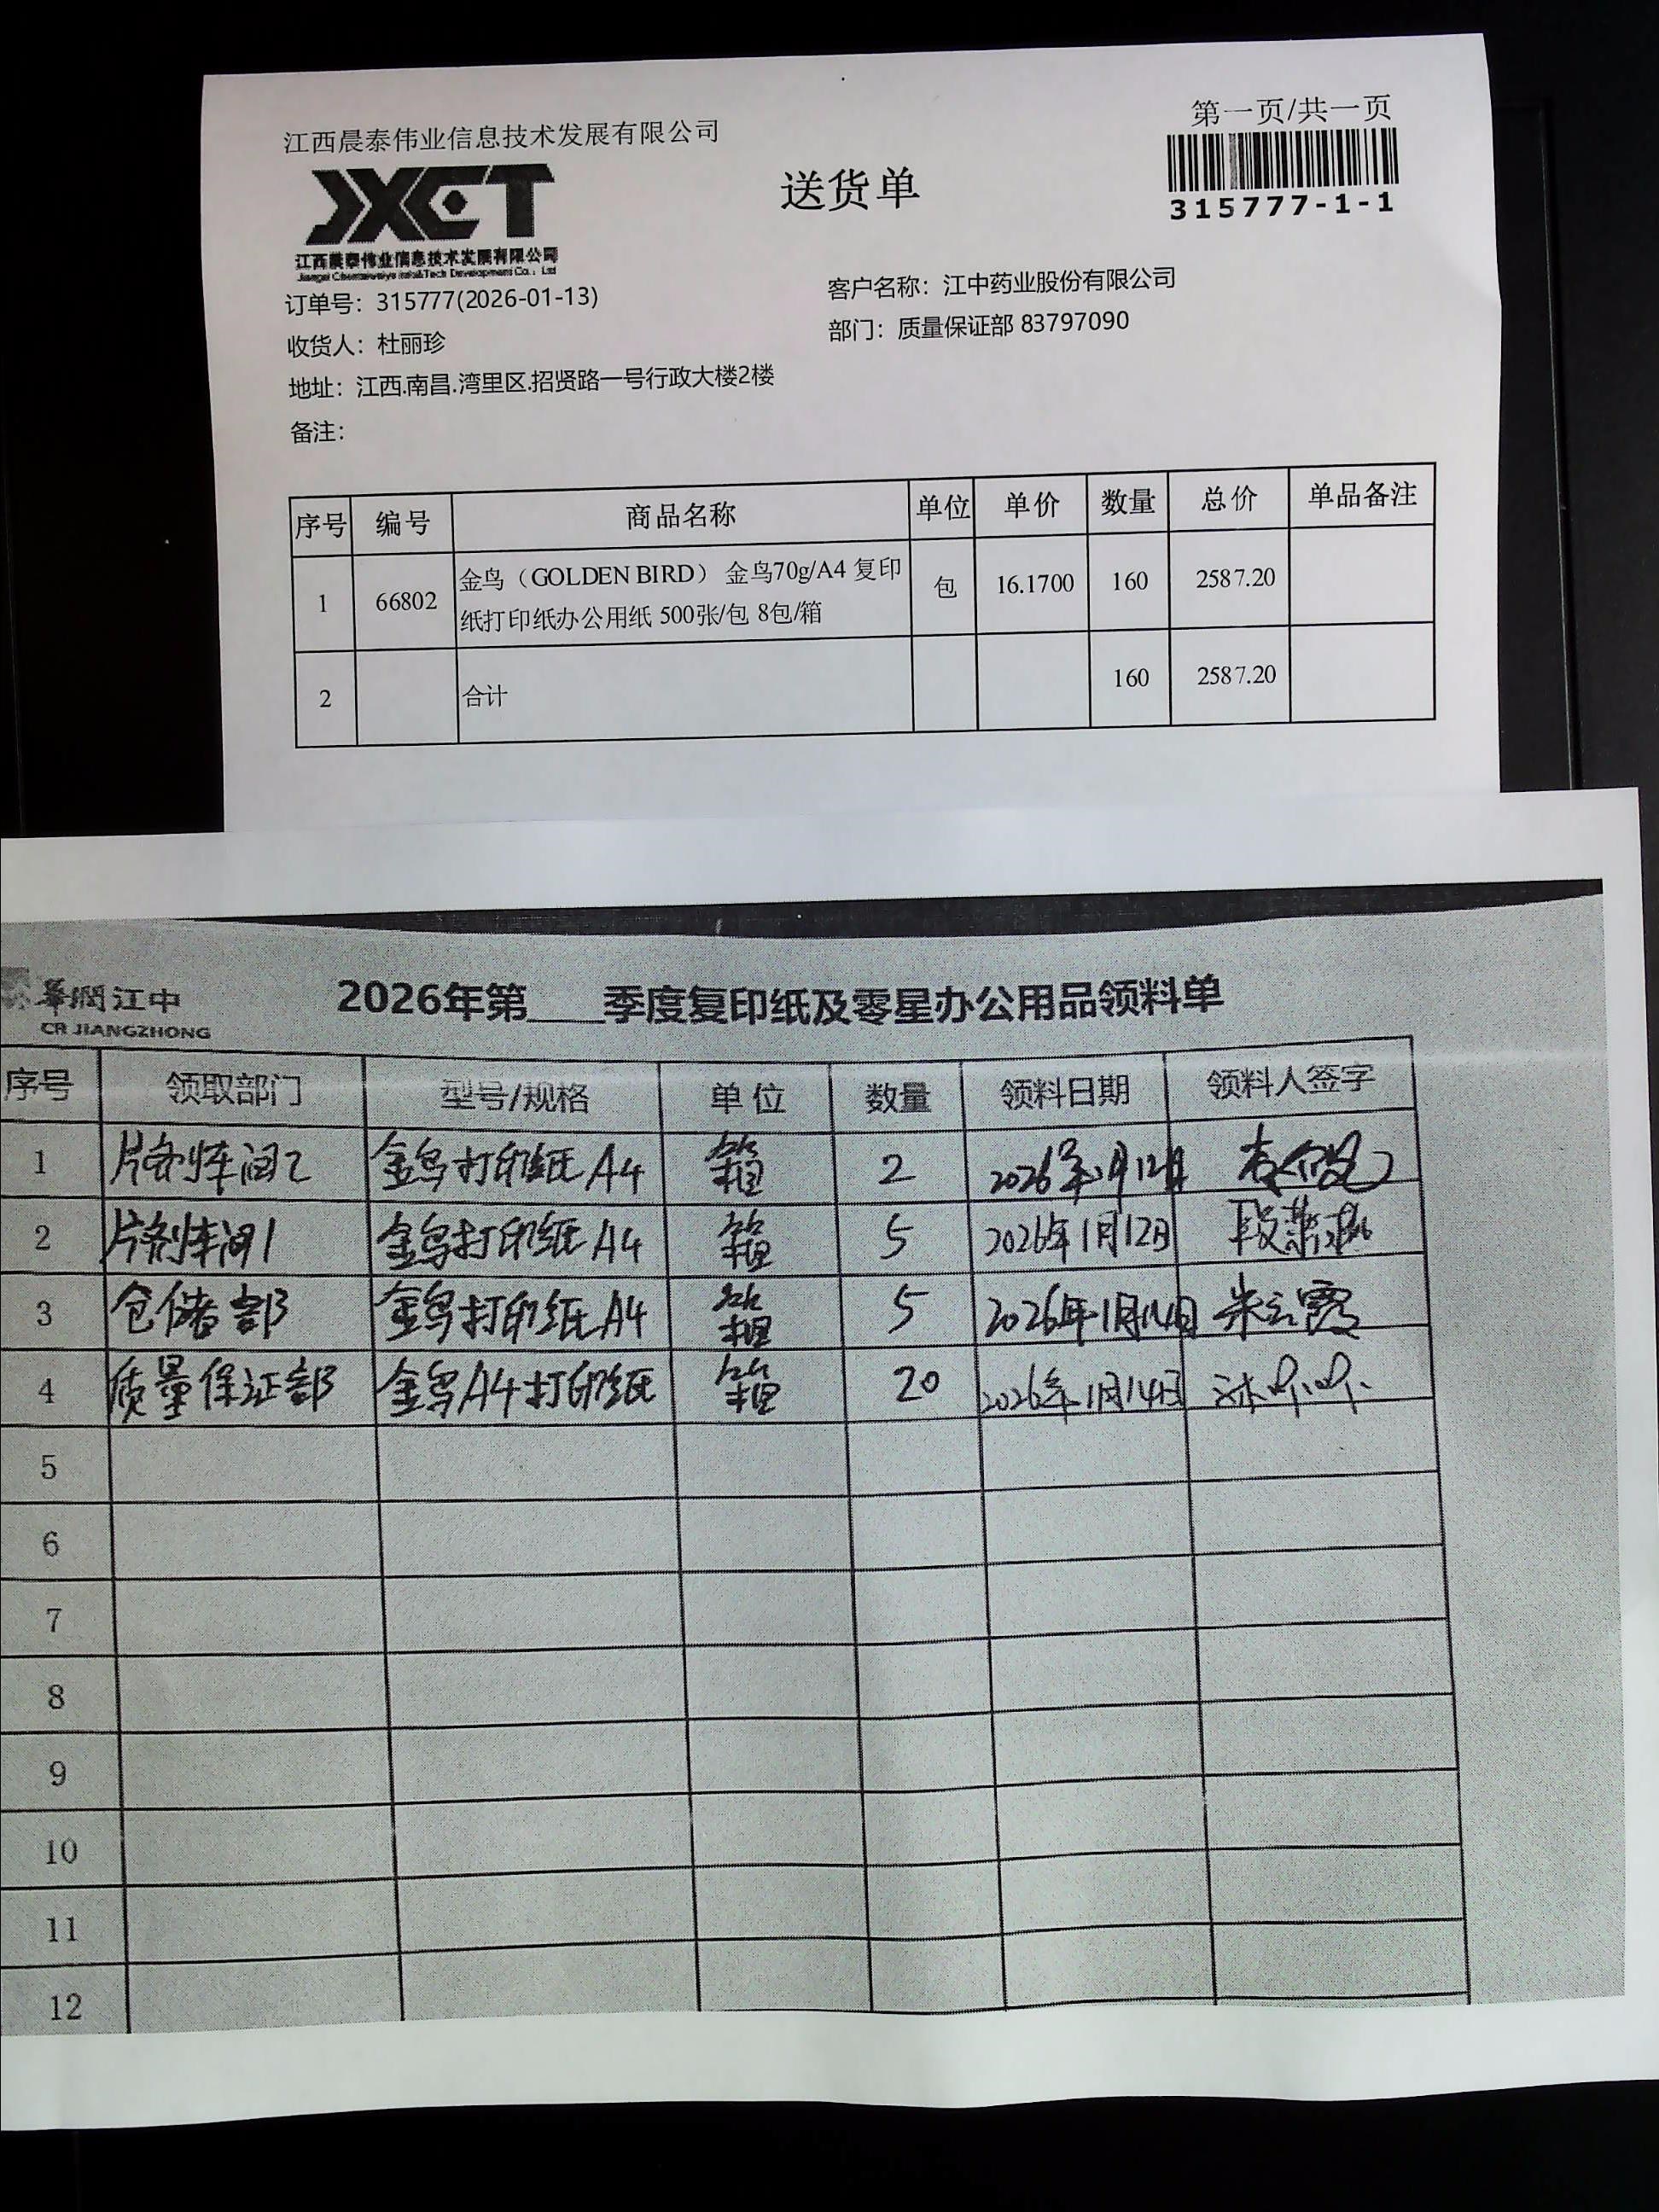 第一页/共一页
江西晨泰伟业信息技术发展有限公司
JXCT
送货单
315777-1-1
江西晨泰伟业信息技术发展有限公司
订单号：315777(2026-01-13)
客户名称：江中药业股份有限公司
收货人：杜丽珍
部门：质量保证部 83797090
地址：江西.南昌.湾里区.招贤路一号行政大楼2楼
备注：
序号 编号 商品名称 单位 单价 数量 总价 单品备注
1 66802 金鸟（GOLDEN BIRD） 金鸟70g/A4 复印
纸打印纸办公用纸 500张/包 8包/箱 包 16.1700 160 2587.20
2 合计 160 2587.20
華潤江中
CR JIANGZHONG
2026年第____季度复印纸及零星办公用品领料单
序号 领取部门 型号/规格 单位 数量 领料日期 领料人签字
1 片剂车间2 金鸟打印纸A4 箱 2 2026年1月12日
2 片剂车间1 金鸟打印纸A4 箱 5 2026年1月12日
3 仓储部 金鸟打印纸A4 箱 5 2026年1月14日 朱云霞
4 质量保证部 金鸟A4打印纸 箱 20 2026年1月14日
5
6
7
8
9
10
11
12